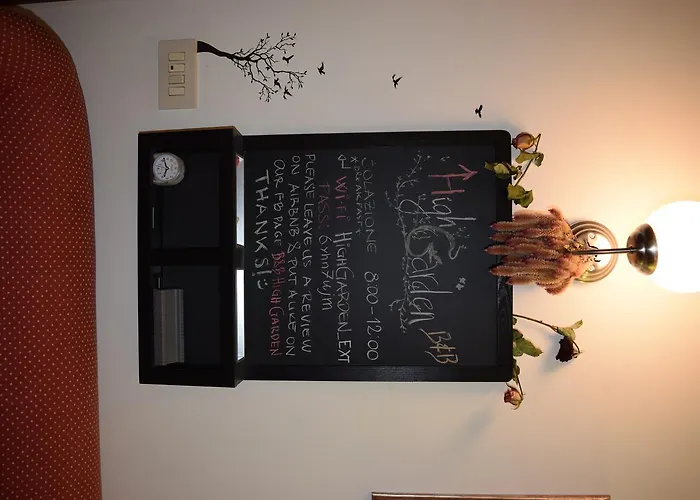 High Garden B&B
COLAZIONE 8:00-12:00
BREAKFAST
WiFi HIGHGARDEN_EXT
PASS: 6yhn7ujm
PLEASE LEAVE US A REVIEW
ON AIRBNB & PUT A LIKE ON
OUR FB PAGE B&B HIGH GARDEN
THANKS!